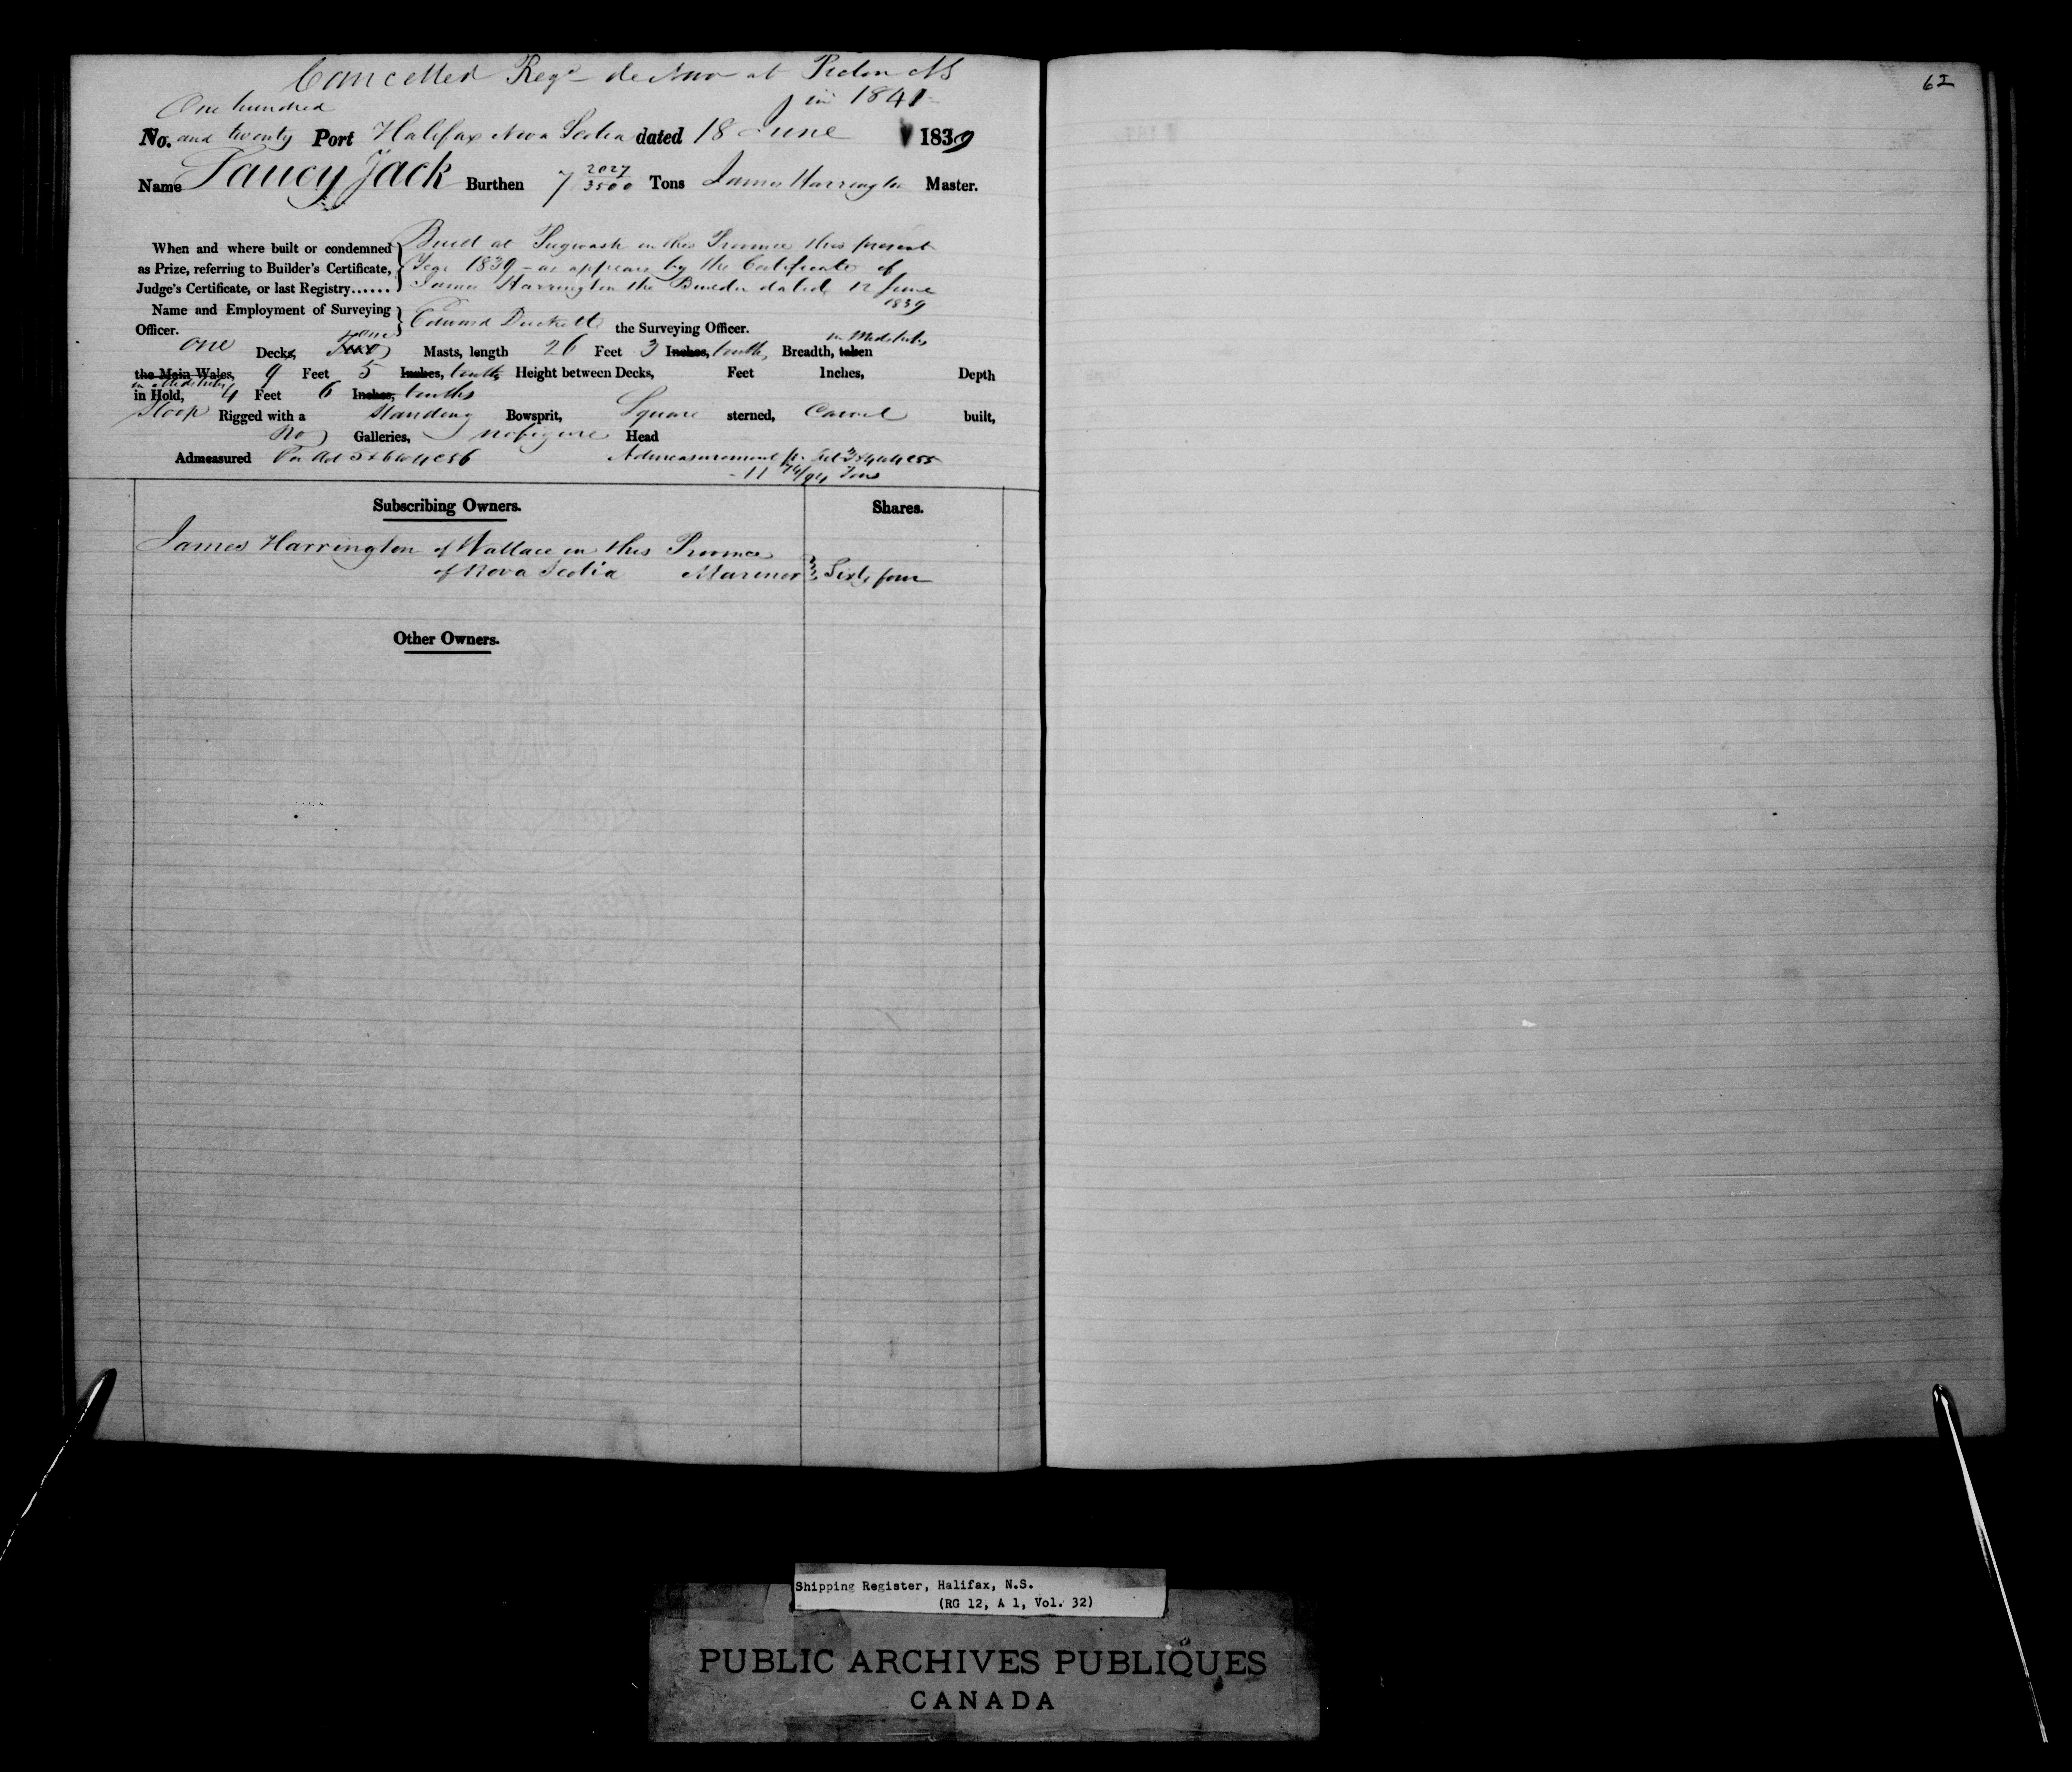 Cancelled Regd de Novo at Pictou NS
in 1841
One hundred
No. and twenty Port Halifax Nova Scotia dated 18 June 1839
Name Fancy Jack Burthen 7 2027/3500 Tons James Harrington Master.
When and where built or condemned as Prize, referring to Builder's Certificate, Judge's Certificate, or last Registry......
Built at Pugwash in this Province this present
Year 1839 - as appears by the Certificate of
James Harrington the Builder dated 12 June
1839
Name and Employment of Surveying Officer.
Edward Duckett the Surveying Officer.
one Decks, Two one Masts, length 26 Feet 3 Inches, tenths, Breadth, taken in Midships
the Main Wales, 9 Feet 5 Inches, tenths Height between Decks, Feet Inches, Depth
in Midships
in Hold, 4 Feet 6 Inches, tenths
Sloop Rigged with a Standing Bowsprit, Square sterned, Carvel built,
No Galleries, no figure Head
Admeasured Per Act 5 & 6 W 4 c 56 Admeasurement pr. Act 3 & 4 W 4 c 55
- 11 74/94 Tons
Subscribing Owners. Shares.
James Harrington of Wallace in this Province
of Nova Scotia Mariner Sixty four
Other Owners.
62
Shipping Register, Halifax, N.S.
(RG 12, A 1, Vol. 32)
PUBLIC ARCHIVES PUBLIQUES
CANADA